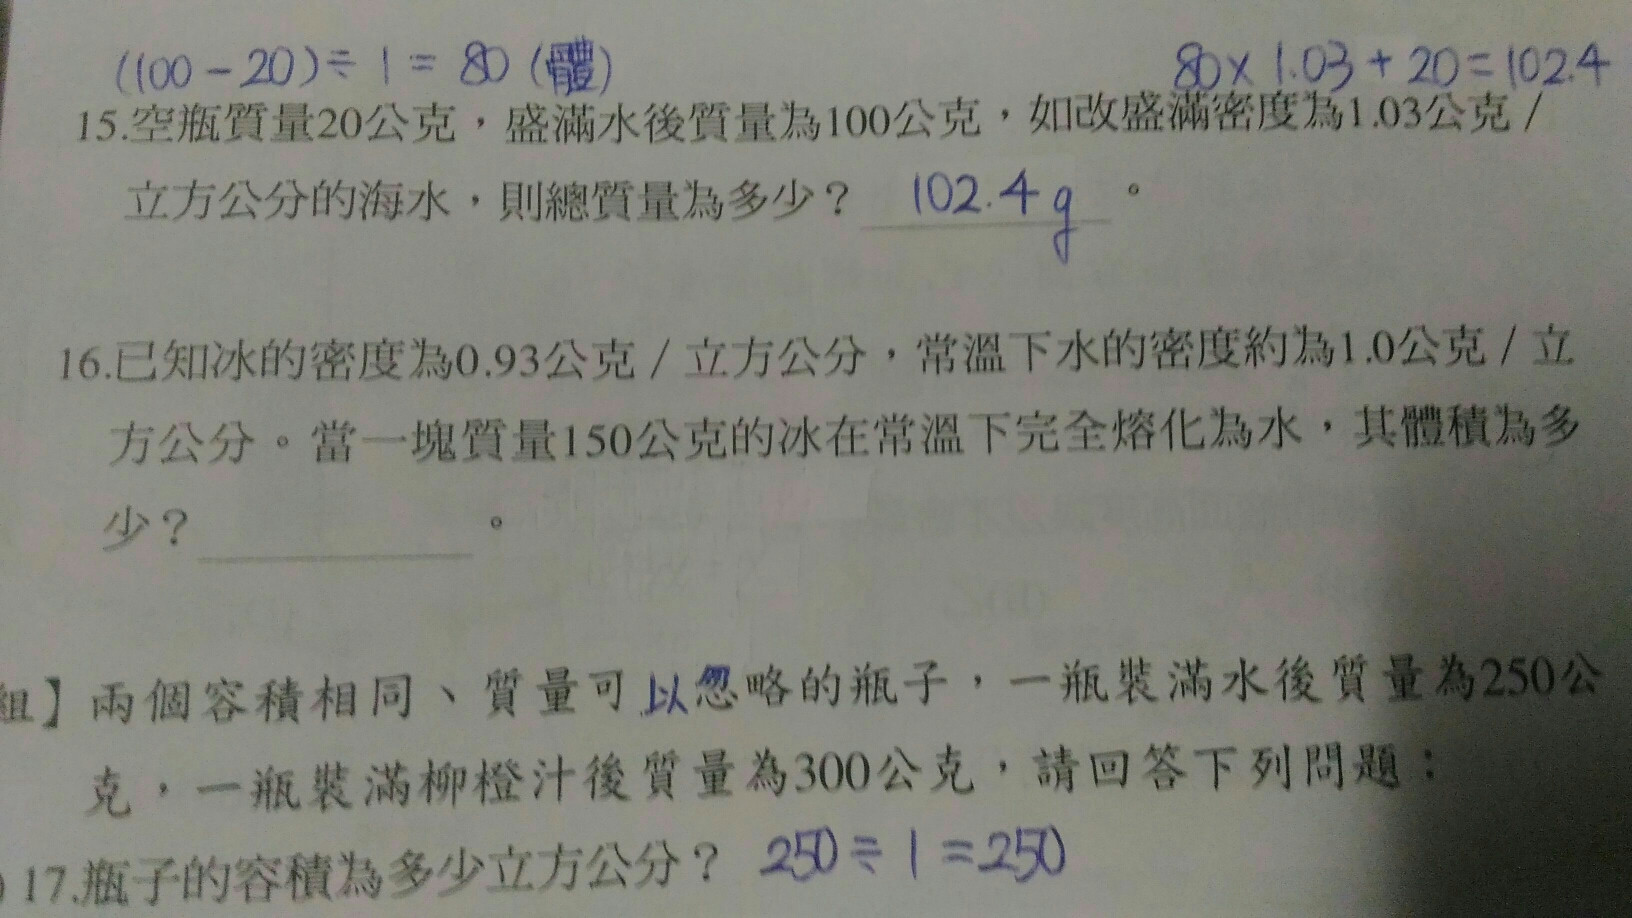 (100-20)÷1=80(體)
80×1.03+20=102.4
15.空瓶質量20公克，盛滿水後質量為100公克，如改盛滿密度為1.03公克／
立方公分的海水，則總質量為多少？ 102.4g 。
16.已知冰的密度為0.93公克／立方公分，常溫下水的密度約為1.0公克／立
方公分。當一塊質量150公克的冰在常溫下完全熔化為水，其體積為多
少？ 。
組】兩個容積相同、質量可以忽略的瓶子，一瓶裝滿水後質量為250公
克，一瓶裝滿柳橙汁後質量為300公克，請回答下列問題：
) 17.瓶子的容積為多少立方公分？ 250÷1=250